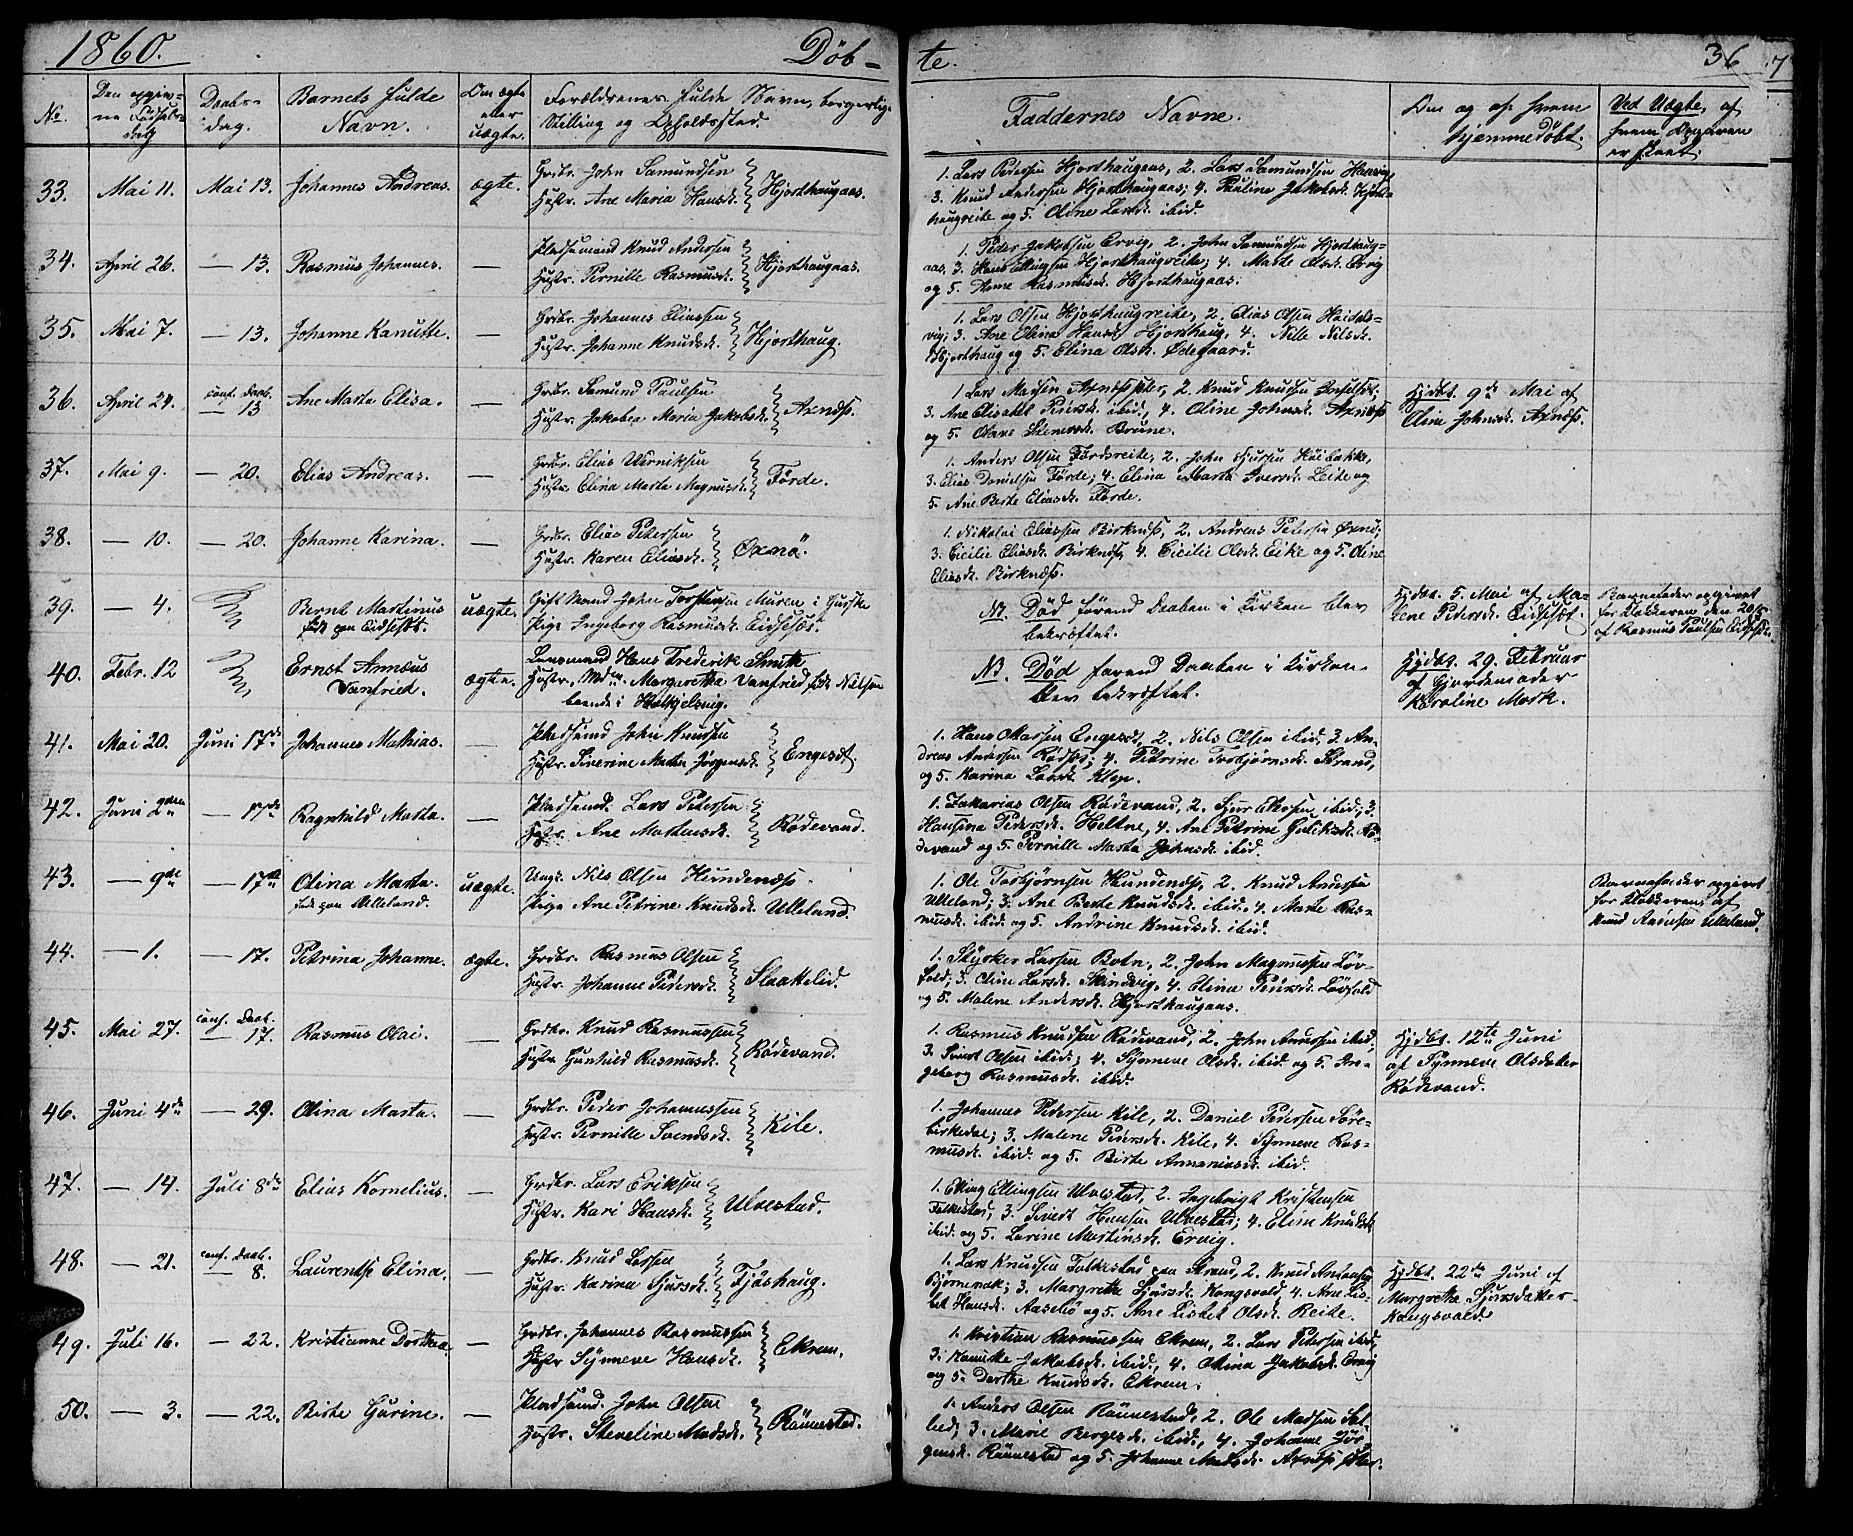 1860.
Døb-
te.
36
No.
Den opgiv-
ne Fødsels-
dag
Daabs-
dag.
Barnets fulde
Navn.
Om ægte
eller
uægte.
Forældrenes fulde Navn, borgerlige
Stilling og Opholdssted.
Faddernes Navne.
Om og af hvem
hjemmedøbt.
Ved Uægte, af
hvem Opgaven
er skeet.
33. Mai 11. Mai 13. Johannes Andreas. ægte. Grdbr. John Samundsen
Hustr. Ane Maria Hansdr. Hjorthaugaas.
1. Lars Pedersen Hjorthaugaas, 2. Lars Samundsen
3. Knud Andersen Hjorthaugaas; 4. Pauline Jakobsdr. Hjort-
haugreite og 5. Oline Larsdr. ibid.
34. April 26. — 13. Rasmus Johannes. — Pladsemand Knud Andersen
Hustr. Pernille Rasmusdr. Hjorthaugaas.
1. Peder Jakobsen Ervig, 2. John Samundsen Hjorthaug-
aas, 3. Hans Ellingsen Hjorthaugreite; 4. Marte Olsdr. Ervig
og 5. Anne Rasmusdr. Hjorthaugaas.
35. Mai 7. — 13. Johanne Kanutte. — Grdbr. Johannes Eliassen
Hustr. Johanne Knudsdr. Hjorthaug.
1. Lars Olsen Hjorthaugreite, 2. Elias Olsen Heidals-
vig; 3. Ane Elina Hansdr. Hjorthaug, 4. Nille Nilsdr.
Hjorthaug og 5. Elina Olsdr. Ødegaard.
36. April 24. conf. Daab.
— 13 Ane Marta Elisa. — Grdbr. Samund Paulsen
Hustr. Jakobea Maria Jakobsdr. Axnæss.
1. Lars Madsen 2. Knud Knudsen
3. Ane Elisabet Petersdr. ibid., 4. Oline Johnsdr. Axnæss
og 5. Olave Stenersdr. Brune.
Hjdbt. 9de Mai af
Oline Johnsdr. Axnæss.
37. Mai 9. — 20. Elias Andreas. — Grdbr. Elias Werniksen
Hustr. Elina Marta Magnusdr. Førde.
1. Anders Olsen Førdsreite, 2. John Høibakke,
3. Elias Danielsen Førde; 4. Elina Marta Iversdr. Leite og
5. Ane Berte Eliasdr. Førde.
38. — 10. — 20. Johanne Karina. — Grdbr. Elias Petersen
Hustr. Karen Eliasdr. Øxnø.
1. Nikolai Eliassen Birknæss, 2. Andreas Petersen Øxnø;
3. Cicilie Eliasdr. Birknæss, 4. Cicilie Olsdr. Eike og 5. Oline
Eliasdr. Birknæss.
39. — 4. Bernt Martinus
født paa Eidsesæt. uægte. Gift Mand John Torstensen Muren i Gurske
Pige Ingeborg Rasmusdr. Eidsesæt.
NB. Død førend Daaben i Kirken blev
bekræftet.
Hjdbt. 5. Mai af Ma-
lene Petersdr. Eidsesæt.
Barnefader opgivet
for Klokkeren den 20
af Rasmus Paulsen Eidsesæt.
40. Febr. 12 Ernst Annæus
Danfried. ægte. Lensmand Hans Frederik Smith
Hustr. Mdm. Margeretha Danfried født Nilsen
boende i Halkjelsvig.
NB. Død førend Daaben i Kirken
blev bekræftet.
Hjdbt. 29. Februar
af Gjordemoder
Karoline Mork.
41. Mai 20. Juni 17de Johannes Mathias. — Pladsemd. John Knudsen
Hustr. Siverine Jørgensdr. Engesæt.
1. Hans Madsen Engesæt, 2. Nils Olsen ibid, 3. An-
dreas Andersen Rødsæt; 4. Petrine Torbjørnsdr. Strand,
og 5. Karina Larsdr. Klep.
42. Juni 2den — 17de Ragnhild Marta. — Pladsemd. Lars Petersen
Hustr. Ane Martensdr. Rødevand.
1. Zakarias Olsen Rødevand, 2. Sjur ibid; 3.
Hansina Pedersdr. Heltne, 4. Ane Petrine Rø-
devand og 5. Pernille Marta Johnsdr. ibid.
43. — 9de — 17de Olina Marta.
født paa Ulleland. uægte. Ungk. Nils Olsen Hundenæss.
Pige Ane Petrine Knudsdr. Ulleland.
1. Ole Torbjørnsen Hundenæss, 2. Knud Andersen
Ulleland; 3. Ane Berte Knudsdr. ibid. 4. Marte Ras-
musdr. ibid. og 5. Andrine Knudsdr. ibid.
Barnefader opgivet
for Klokkeren af
Knud Andersen Ulleland.
44. — 1. — 17. Petrina Johanne. ægte. Grdbr. Rasmus Olsen
Hustr. Johanne Pedersdr. Slaakelid.
1. Styrker Larsen Botn, 2. John Magnussen Løv-
fold; 3. Oline Larsdr. Skindvig, 4. Elina Petersdr. Løvfold
og 5. Malene Andersdr. Hjorthaugaas.
45. Mai 27. conf. Daab.
— 17. Rasmus Olai. — Grdbr. Knud Rasmussen
Hustr. Gunhild Rasmusdr. Rødevand.
1. Rasmus Knudsen Rødevand, 2. John Andersen ibid,
3. Sivert Olsen ibid; 4. Synneve Olsdr. ibid og 5. In-
geborg Rasmusdr. ibid.
Hjdbt. 12te Juni
af Synneve Olsdatter
Rødevand.
46. Juni 4de — 29. Olina Marta. — Grdbr. Peder Johannessen
Hustr. Pernille Svendsdr. Kile.
1. Johannes Pedersen Kile, 2. Daniel Pedersen Søre-
birkedal; 3. Malene Petersdr. Kile, 4. Synneve Ras-
musdr. ibid. og 5. Birte Annaniasdr. ibid.
47. — 14. Juli 8de Elias Kornelius. — Grdbr. Lars Eriksen
Hustr. Kari Hansdr. Ulvestad.
1. Elling Ellingsen Ulvestad, 2. Ingebrigt Kristensen
Folkestad; 3. Sivert Hansen Ulvestad; 4. Eline Knudsdr.
ibid. og 5. Larine Martinsdr. Ervig.
48. — 21. conf. Daab.
— 8. Laurentse Elina. — Grdbr. Knud Larsen
Hustr. Karina Sjursdr. Fjøshaug.
1. Lars Knudsen Folkestad paa Strand, 2. Knud Antonsen
Bjørnenak; 3. Margrethe Sjursdr. Kongsvold, 4. Ane Lis-
bet Hansdr. Aasebø og 5. Ane Lisbet Olsdr. Reite.
Hjdbt. 22de Juni af
Margrethe Sjursdatter
Kongsvold.
49. Juli 16. — 22. Kristianne Dorthea. — Grdbr. Johannes Rasmussen
Hustr. Synneve Hansdr. Ekrem.
1. Kristian Rasmussen Ekrem, 2. Lars Petersen ibid,
3. Jakobsdr. ibid., 4. Olina Jakobsdr. Ervig
og 5. Dorthe Knudsdr. Ekrem.
50. — 3. — 22. Birte Gurine. — Pladsemd. John Olsen
Hustr. Steveline Madsdr. Rønnestad.
1. Anders Olsen Rønnestad, 2. Ole Madsen Sel-
lied; 3. Marie Bergesdr. ibid., 4. Johanne Jør-
gensdr. Rønnestad og 5. Johanne Madsdr.